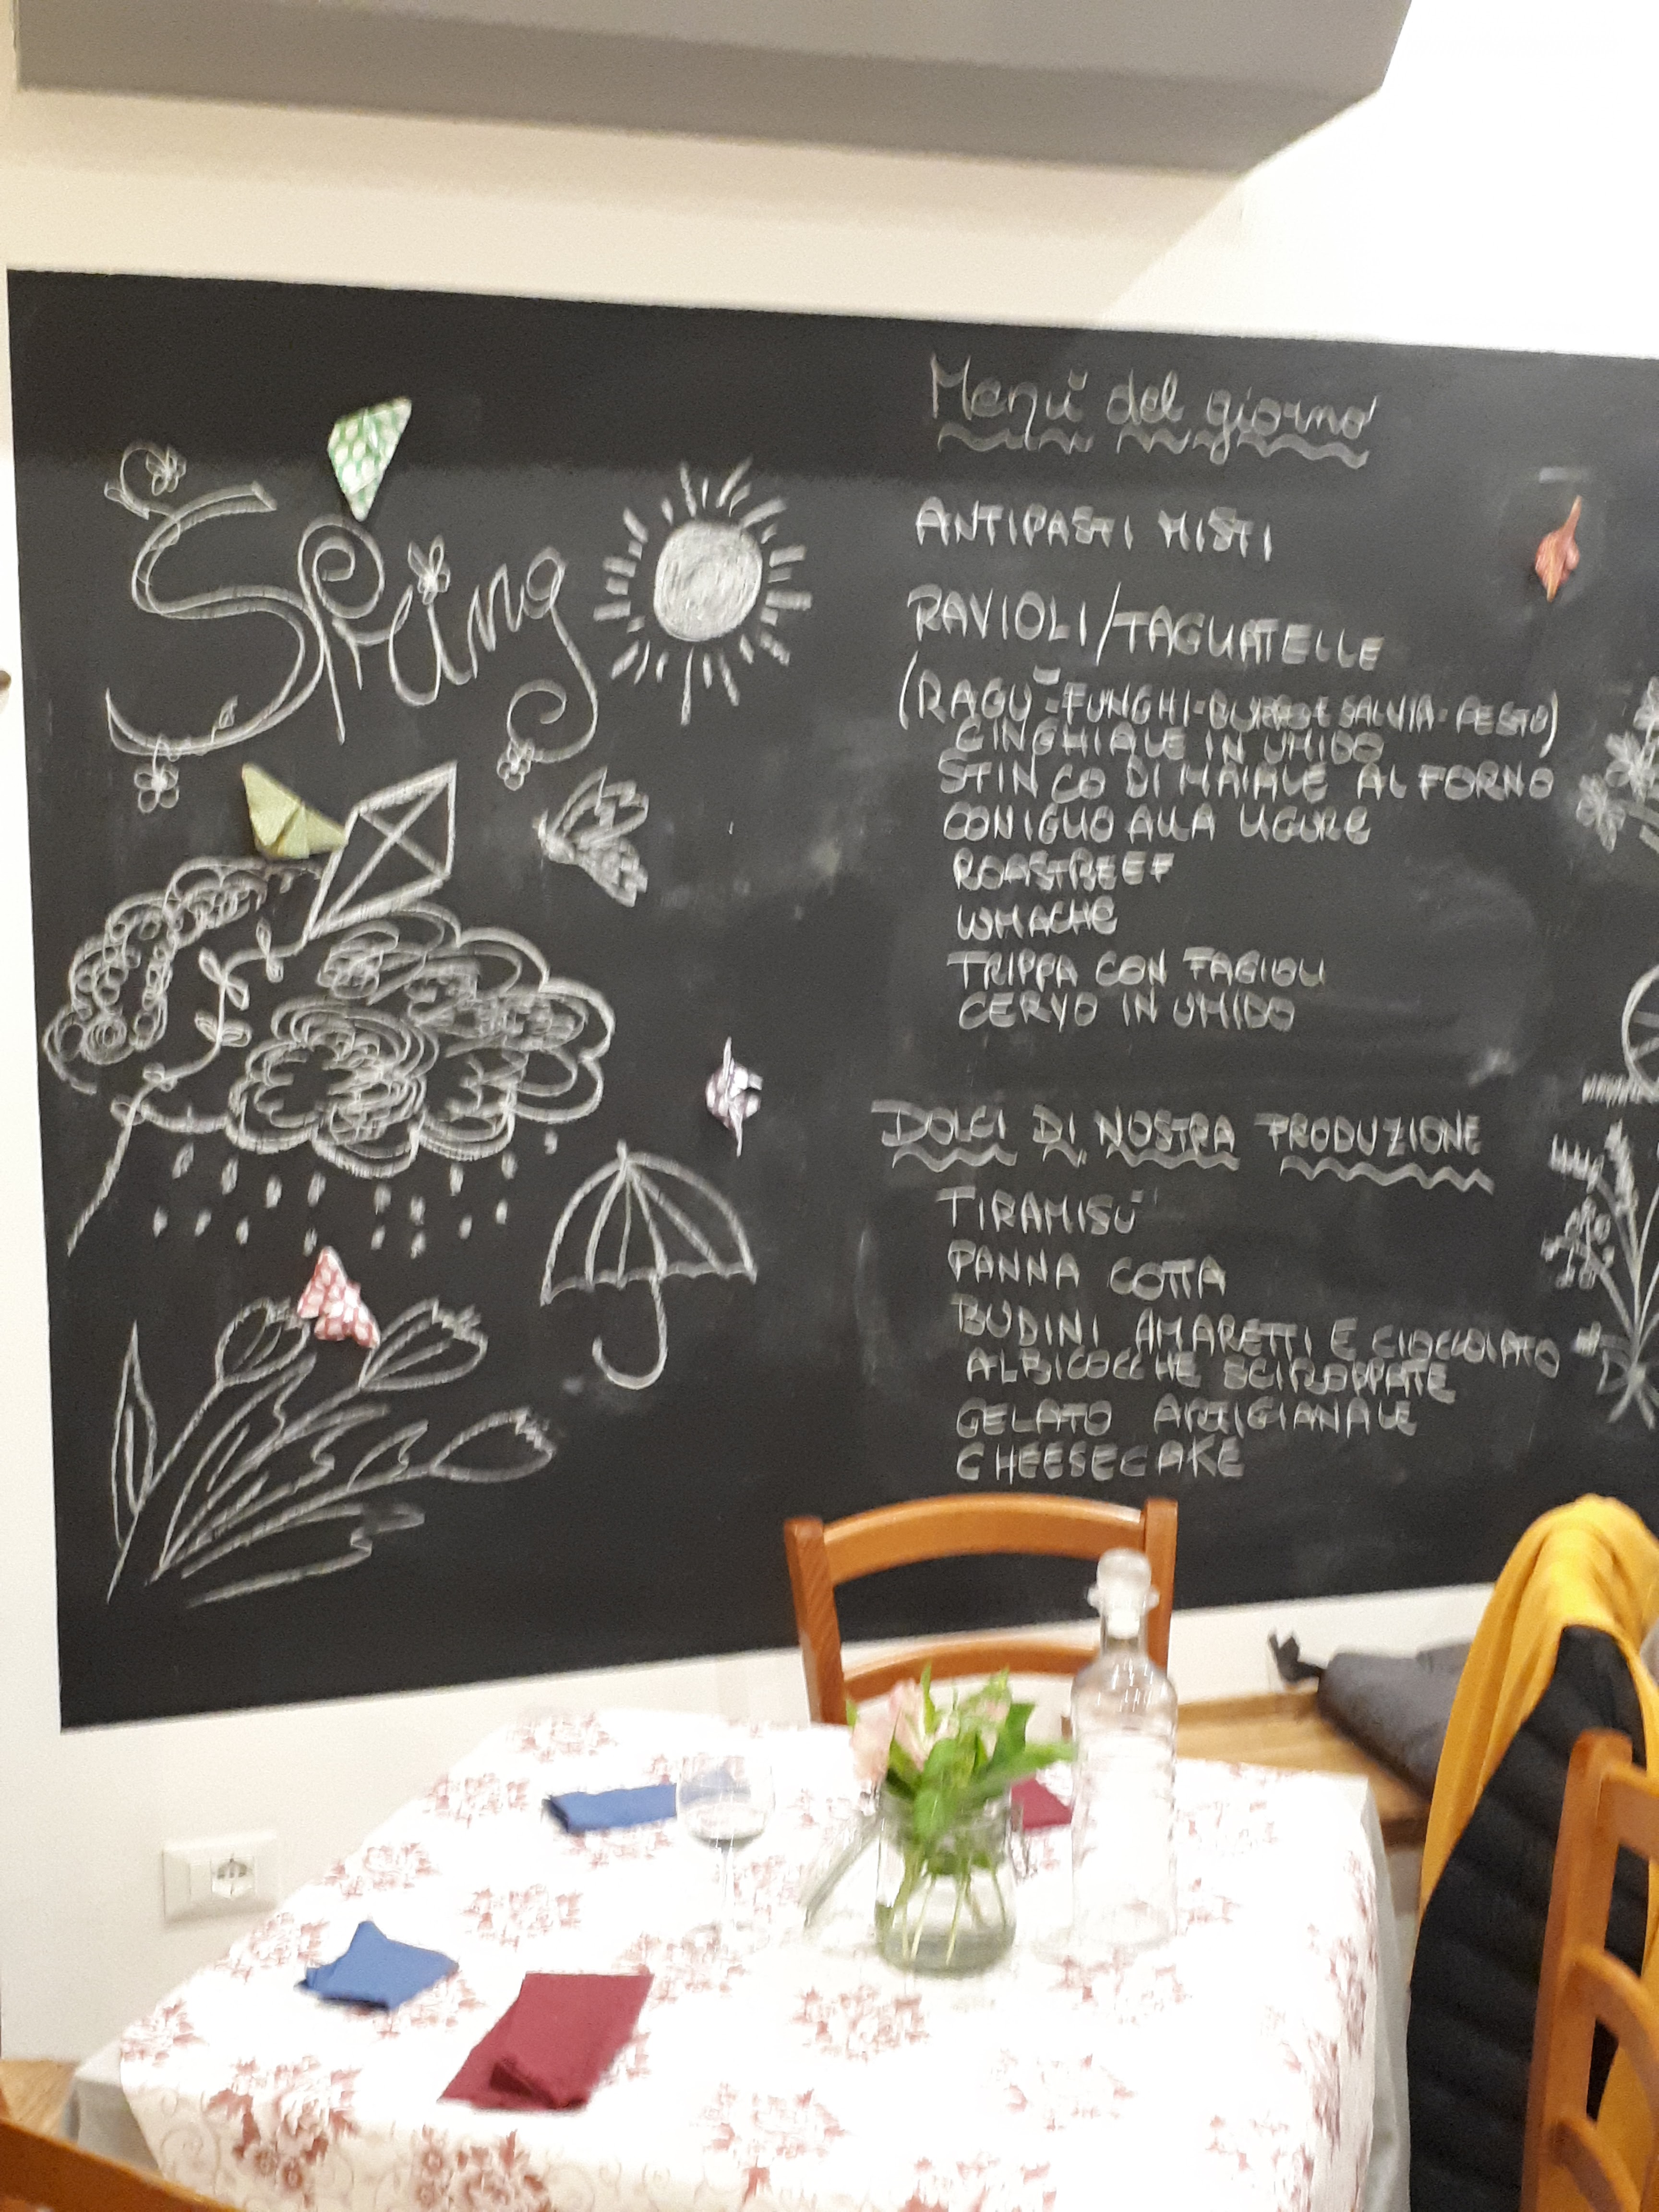 Spring
Menù del giorno
ANTIPASTI MISTI
RAVIOLI/TAGLIATELLE
(RAGÙ-FUNGHI-BURRO E SALVIA-PESTO)
CINGHIALE IN UMIDO
STINCO DI MAIALE AL FORNO
CONIGLIO ALLA LIGURE
ROASTBEEF
LUMACHE
TRIPPA CON FAGIOLI
CERVO IN UMIDO
DOLCI DI NOSTRA PRODUZIONE
TIRAMISÙ
PANNA COTTA
BUDINI AMARETTI E CIOCCOLATO
ALBICOCCHE SCIROPPATE
GELATO ARTIGIANALE
CHEESECAKE